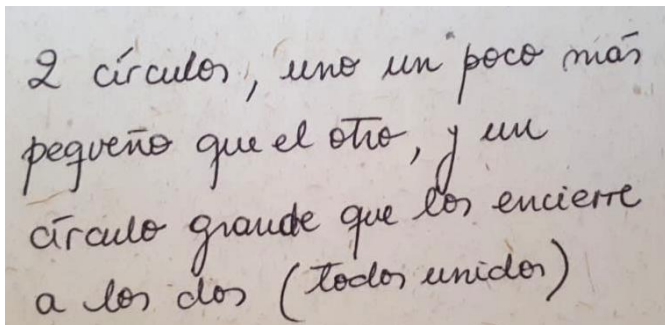 2 círculos, uno un poco más
pequeño que el otro, y un
círculo grande que los encierre
a los dos (todos unidos)